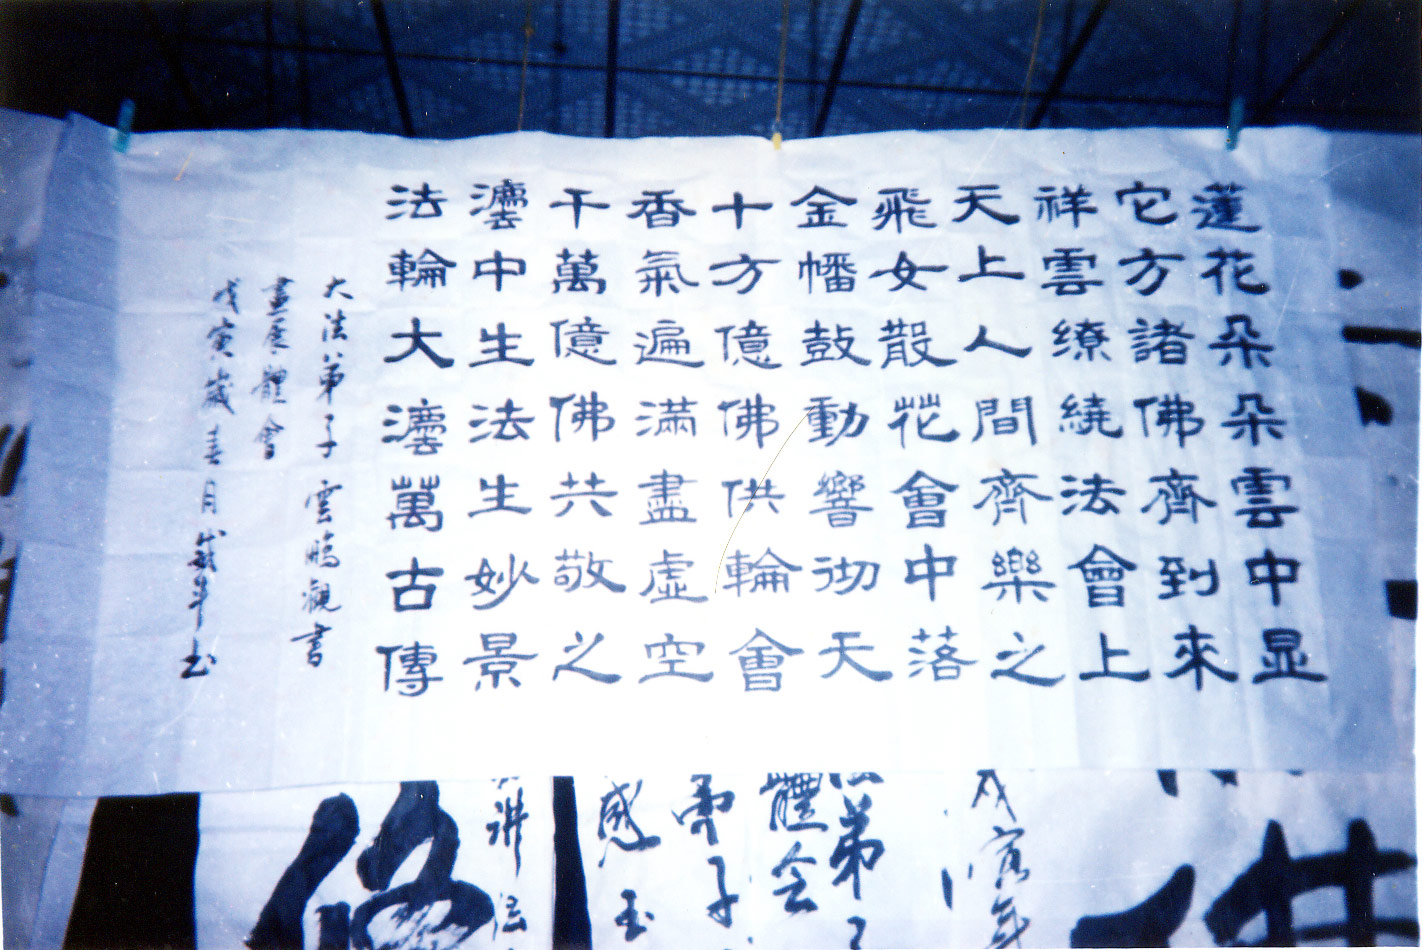 蓮花朵朵雲中显
它方諸佛齊到來
祥雲繚繞法會上
天上人間齊樂之
飛女散花會中落
金幡鼓動響彻天
十方億佛供輪會
香氣遍滿盡虛空
千萬億佛共敬之
灋中生法生妙景
法輪大灋萬古傳
大法弟子雲鵬觀書
畫展體會
戊寅歲春月
书
戊寅年
法弟子
體會
雷子
感
讲法
佛